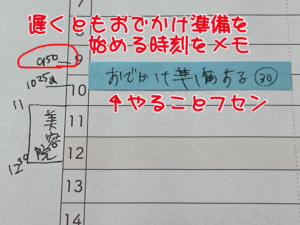 遅くともおでかけ準備を
始める時刻をメモ
7
8
950
9
1025
10
おでかけ準備する 30
↑やることフセン
11
11
美容院
12
1230
13
14